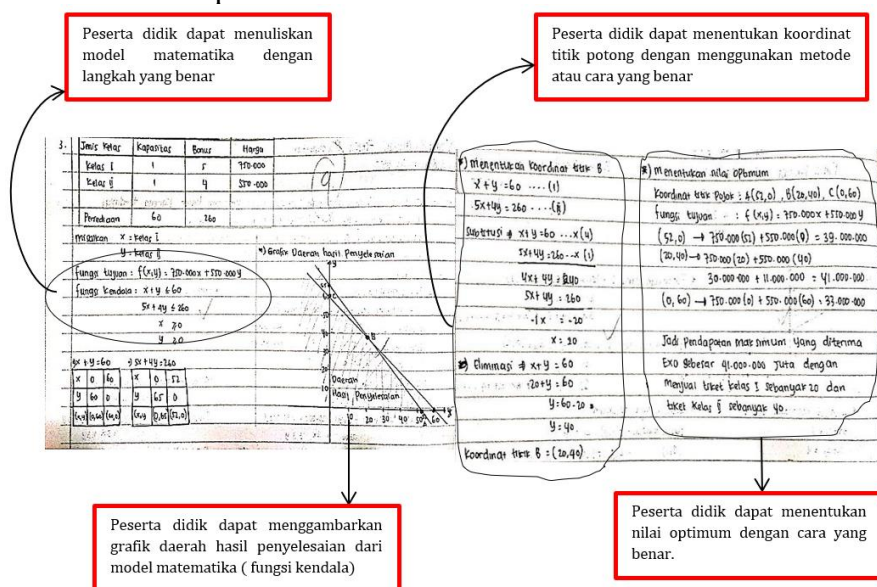 Peserta didik dapat menuliskan
model matematika dengan
langkah yang benar
Peserta didik dapat menentukan koordinat
titik potong dengan menggunakan metode
atau cara yang benar
3.
Jenis Kelas Kapasitas Bonus Harga
Kelas I 1 5 750.000
Kelas II 1 4 550.000
Persediaan 60 260
misalkan x = kelas I
y = kelas II
fungsi tujuan : f(x,y) = 750.000x + 550.000y
fungsi kendala : x + y ≤ 60
5x + 4y ≤ 260
x ≥ 0
y ≥ 0
x + y = 60
x 0 60
y 60 0
(x,y) (0,60) (60,0)
5x + 4y = 260
x 0 52
y 65 0
(x,y) (0,65) (52,0)
*) Grafik Daerah hasil Penyelesaian
B
Daerah
Hasil Penyelesaian
10 20 30 40 50 60
*) menentukan koordinat titik B
x + y = 60 .... (1)
5x + 4y = 260
Subtitusi → x + y = 60 ... x (4)
5x + 4y = 260 ... x (1)
4x + 4y = 240
5x + 4y = 260
-1x = -20
x = 20
Eliminasi → x + y = 60
20 + y = 60
y = 60 - 20
y = 40
Koordinat titik B = (20,40)
*) menentukan nilai Optimum
Koordinat titik Pojok : A(52,0), B(20,40), C(0,60)
fungsi tujuan : f(x,y) = 750.000x + 550.000y
(52,0) → 750.000(52) + 550.000(0) = 39.000.000
(20,40) → 750.000(20) + 550.000(40)
30.000.000 + 11.000.000 = 41.000.000
(0,60) → 750.000(0) + 550.000(60) = 33.000.000
Jadi pendapatan maksimum yang diterima
Exo sebesar 41.000.000 Juta dengan
menjual tiket kelas I sebanyak 20 dan
tiket kelas II sebanyak 40.
Peserta didik dapat menggambarkan
grafik daerah hasil penyelesaian dari
model matematika ( fungsi kendala)
Peserta didik dapat menentukan
nilai optimum dengan cara yang
benar.